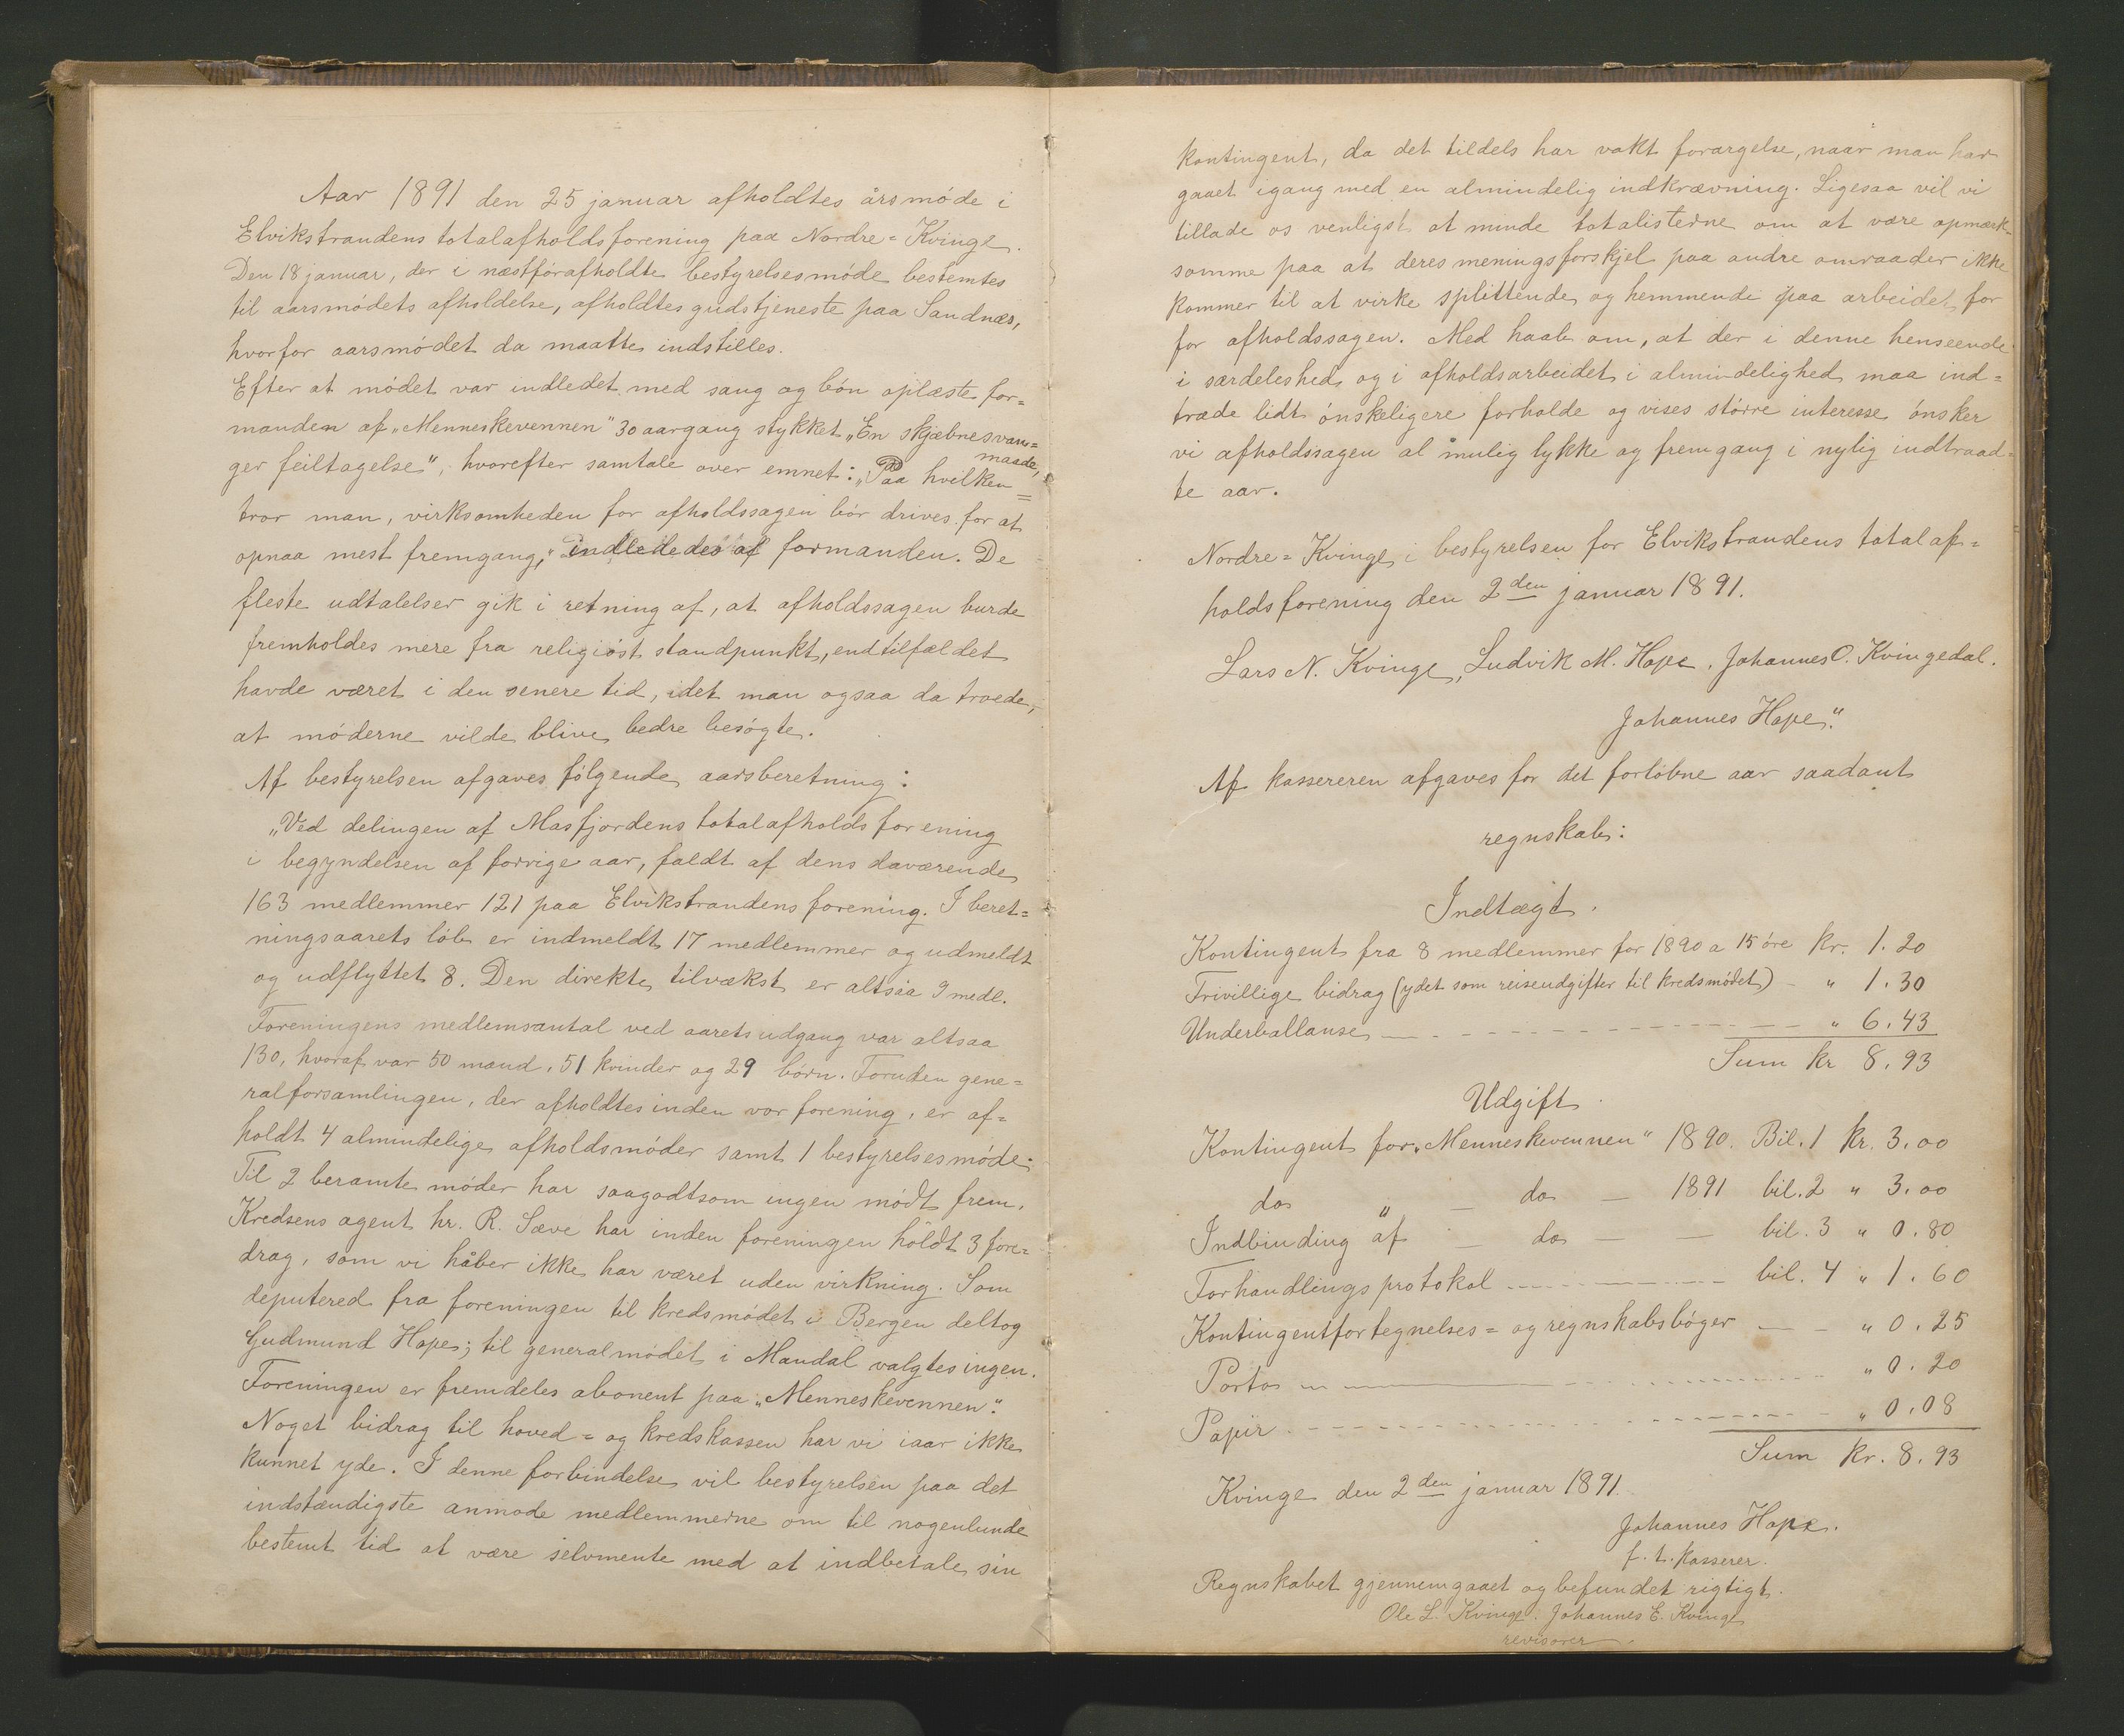 Aar 1891 den 25 januar afholdtes årsmöde i
Elvikstrandens totalafholdsforening paa Nordre=Kvinge.
Den 18 januar, der i næstförafholdte bestyrelsesmöde bestemtes
til aarsmödets afholdelse, afholdtes gudstjeneste paa Sandnæs,
hvorfor aarsmödet da maatte indstilles.
Efter at mödet var indledet med sang og bön oplæste for=
manden af „Menneskevennen" 30 aargang stykket „En skjæbnesvan=
ger feiltagelse", hvorefter samtale over emnet: „Paa hvilken maade,
tror man, virksomheden for afholdssagen bör drives for at
opnaa mest fremgang," indlededes af formanden. De
fleste udtalelser gik i retning af, at afholdssagen burde
fremholdes mere fra religiöst standpunkt, end tilfældet
havde været i den senere tid, idet man ogsaa da troede,
at möderne vilde blive bedre besögte.
Af bestyrelsen afgaves fölgende aarsberetning:
„Ved delingen af Masfjordens totalafholdsforening
i begyndelsen af forrige aar, faldt af dens daværende
163 medlemmer 121 paa Elvikstrandens forening. I beret=
ningsaarets löb er indmeldt 17 medlemmer og udmeldt
og udflyttet 8. Den direkte tilvækst er altsaa 9 medl.
Foreningens medlemsantal ved aarets udgang var altsaa
130, hvoraf var 50 mænd, 51 kvinder og 29 börn. Foruden gene=
ralforsamlingen, der afholdtes inden vor forening, er af=
holdt 4 almindelige afholdsmöder samt 1 bestyrelsesmöde.
Til 2 beramte möder har saagodtsom ingen mödt frem.
Kredsens agent hr. R. Sæve har inden foreningen höldt 3 fore=
drag, som vi håber ikke har været uden virkning. Som
deputered fra foreningen til kredsmödet i Bergen deltog
Gudmund Hope; til generalmödet i Mandal valgtes ingen.
Foreningen er fremdeles abonent paa „Menneskevennen".
Noget bidrag til hoved= og kredskassen har vi iaar ikke
kunnet yde. I denne forbindelse vil bestyrelsen paa det
indstændigste anmode medlemmerne om til nogenlunde
bestemt tid at være selvmente med at indbetale sin
kontingent, da det tildels har vakt forargelse, naar man har
gaaet igang med en almindelig indkrævning. Ligesaa vil vi
tillade os venligst at minde totalisterne om at være opmærk=
somme paa at deres meningsforskjel paa andre omraader ikke
kommer til at virke splittende og hemmende paa arbeidet for
for afholdssagen. Med haab om, at der i denne henseende
i særdeleshed og i afholdsarbeidet i almindelighed maa ind=
træde lidt önskeligere forholde og vises större interesse önsker
vi afholdssagen al mulig lykke og fremgang i nylig indtraad=
te aar.
Nordre=Kvinge i bestyrelsen for Elvikstrandens totalaf=
holdsforening den 2den januar 1891.
Lars N. Kvinge, Ludvik M. Hope, Johannes O. Kvingedal.
Johannes Hope".
Af kassereren afgaves for det forlöbne aar saadant
regnskab:
Indtægt.
Kontingent fra 8 medlemmer for 1890 a 15 öre kr. 1.20
Frivillige bidrag (ydet som reiseudgifter til kredsmödet) - „ 1.30
Underballanse - - - „ 6.43
Sum kr 8.93
Udgift.
Kontingent for „Menneskevennen" 1890. Bil. 1 kr. 3.00
do „ - do - 1891 bil. 2 „ 3.00
Indbinding af - do - - bil. 3 „ 0.80
Forhandlingsprotokol - - - bil. 4 „ 1.60
Kontingentfortegnelses= og regnskabsböger - - „ 0.25
Porto - - - „ 0.20
Papir - - - „ 0.08
Sum kr. 8.93
Kvinge den 2den januar 1891.
Johannes Hope.
f.t. kasserer.
Regnskabet gjennemgaaet og befundet rigtigt.
Ole L. Kvinge. Johannes E. Kvinge
revisorer.